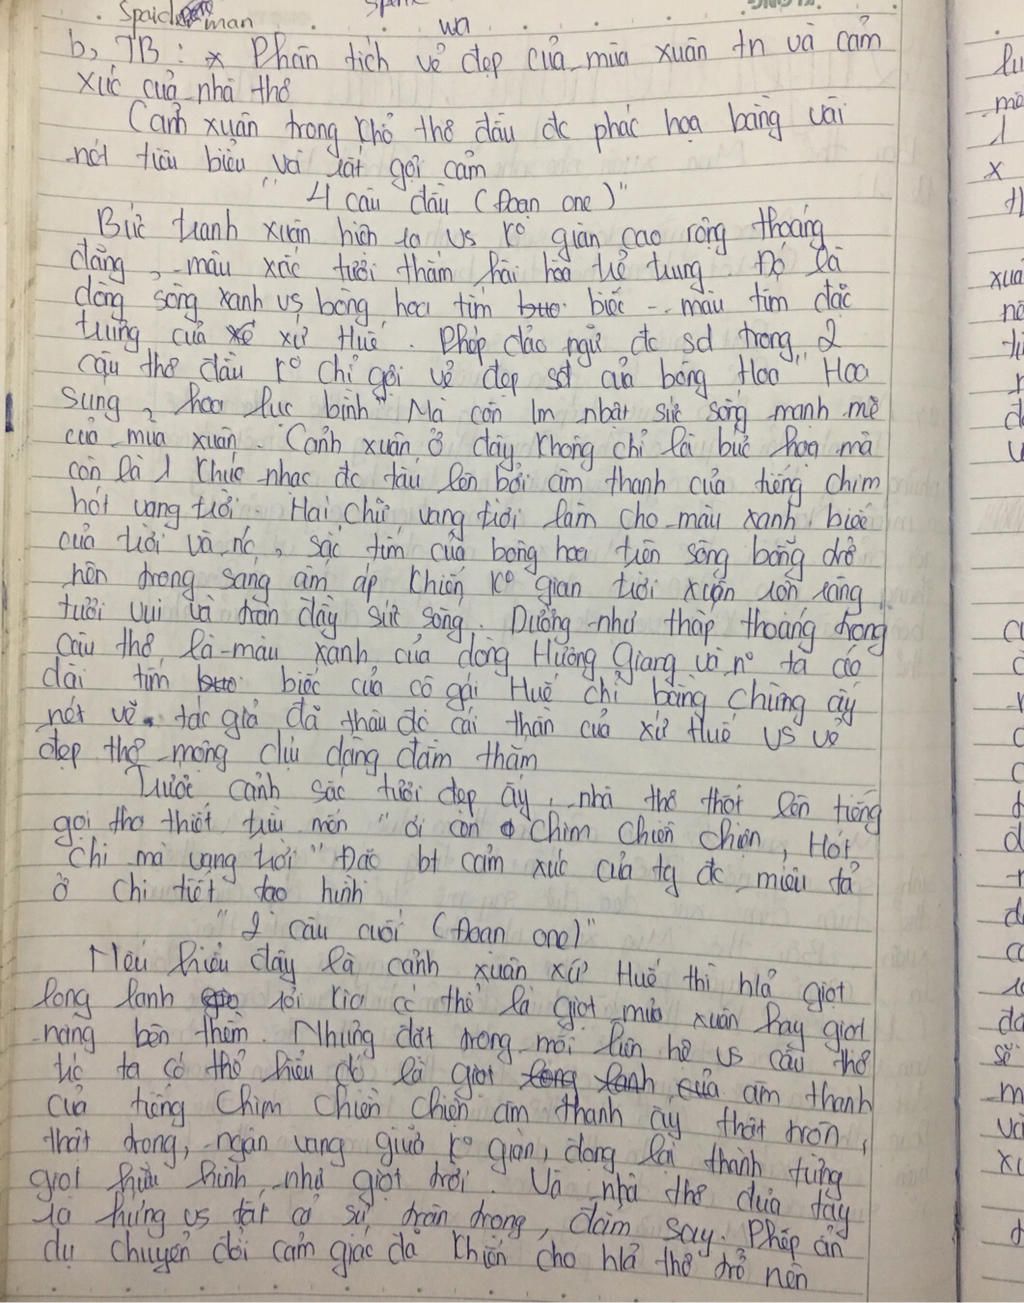 Spaid man
wa
b, TB : * Phân tích vẻ đẹp của mùa xuân tn và cảm
xúc của nhà thơ
Cảnh xuân trong khổ thơ đầu đc phác họa bằng vài
nét tiêu biểu và rất gợi cảm
" 4 câu đầu (Đoạn one)"
Bức tranh xuân hiện ra vs ko gian cao rộng thoáng
đãng, màu xắc tươi thắm hài hòa trẻ trung Đó là
dòng sông xanh vs bông hoa tím biếc - màu tím đặc
trưng của xứ Huế. Phép đảo ngữ đc sd trong 2
câu thơ đầu ko chỉ gợi vẻ đẹp sđ của bông Hoa "Hoa
Súng, hoa lục bình" Mà còn lm nhật sức sống mạnh mẽ
của mùa xuân. Cảnh xuân ở đây không chỉ là bức họa mà
còn là 1 khúc nhạc đc tấu lên bởi âm thanh của tiếng chim
hót vang trời. Hai chữ vang trời làm cho màu xanh biếc
của trời và nc, sắc tím của bông hoa trên sông bỗng trở
nên trong sáng ấm áp khiến ko gian trời xuân rộn ràng,
tươi vui và tràn đầy sức sống. Dường như thấp thoáng trong
câu thơ là màu xanh của dòng Hương Giang và no tà áo
dài tím biếc của cô gái Huế chỉ bằng chừng ấy
nét vẽ tác giả đã thâu đc cái thần của xứ Huế vs vẻ
đẹp thơ mộng dịu dàng đằm thắm
Trước cảnh sắc tươi đẹp ấy, nhà thơ thốt lên tiếng
gọi tha thiết trìu mến " ơi con chim chiền chiện, Hót
chi mà vang trời" Đặc bt cảm xúc của tg đc miêu tả
ở chi tiết tạo hình
" 2 câu cuối (Đoạn one)"
Nếu hiểu đây là cảnh xuân xứ Huế thì hlả giọt
long lanh rơi kia có thể là giọt mưa xuân hay giọt
nắng bên thềm. Nhưng đặt trong mối liên hệ vs câu thơ
trc ta có thể hiểu đó là giọt long lanh của âm thanh
của tiếng chim chiền chiện âm thanh ấy thật tròn,
thật trong, ngân vang giữa ko gian, đọng lại thành từng
giọt hữu hình như giọt trời. Và nhà thơ đưa tay
ra hứng vs tất cả sự trân trọng, đắm say. Phép ẩn
dụ chuyển đổi cảm giác đã khiến cho hlả thơ trở nên